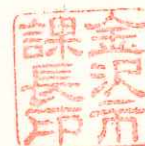 金沢市
課長印